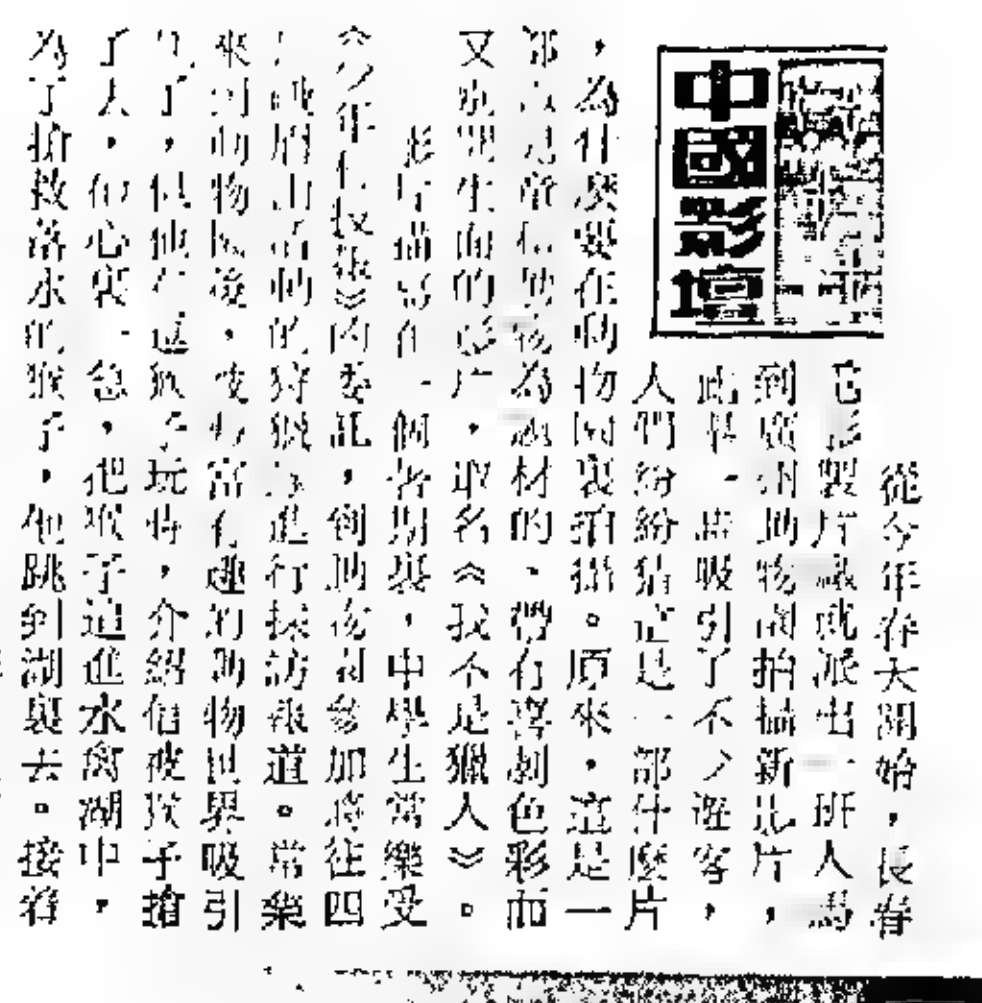 中國影壇
從今年春天開始，長春
電影製片廠就派出一班人馬
到廣州動物園拍攝新片，
此舉一直吸引了不少遊客，
人們紛紛猜這是一部什麼片
，為什麼要在動物園裏拍攝。原來，這是一
部以兒童和動物為題材的、帶有喜劇色彩而
又別開生面的影片，取名《我不是獵人》。
影片描寫在一個暑期裏，中學生常樂受
《少年　報》的委託，到動　園參加　往四
川峨眉山活動的狩獵　進行採訪報道。常樂
來到動物園後，被　富有趣的動物世界吸引
了，但他在逗猴子玩時，介紹信被猴子搶
了去，他心裏一急，把猴子追進水禽湖中，
為了搶救落水的猴子，他跳到湖裏去。接着